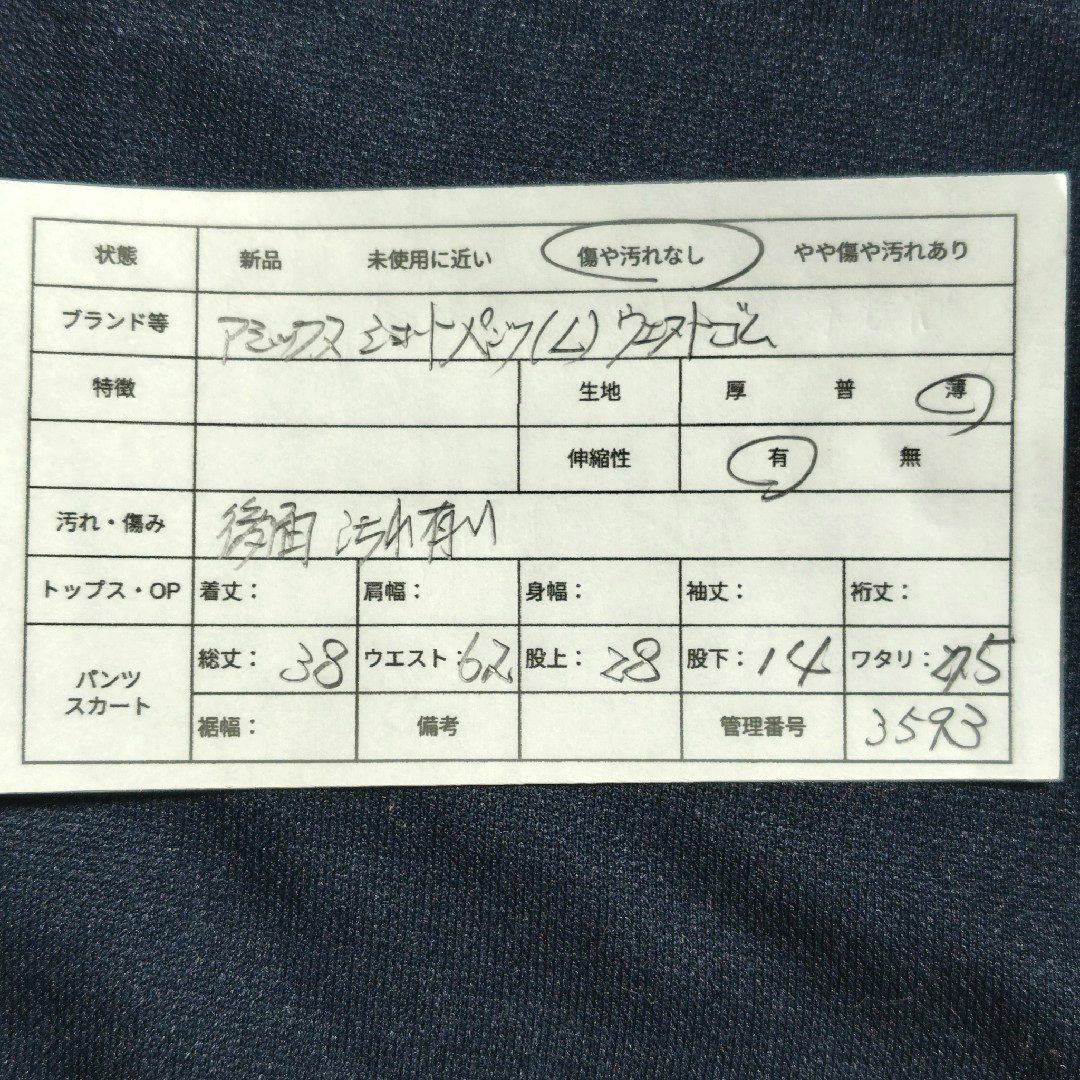 状態 新品 未使用に近い 傷や汚れなし やや傷や汚れあり
ブランド等 アシックス ショートパンツ(L) ウエストゴム
特徴 生地 厚 普 薄
伸縮性 有 無
汚れ・傷み 後面 汚れ有り
トップス・OP 着丈： 肩幅： 身幅： 袖丈： 裄丈：
パンツ スカート 総丈：38 ウエスト：62 股上：28 股下：14 ワタリ：
裾幅： 備考 管理番号 3593